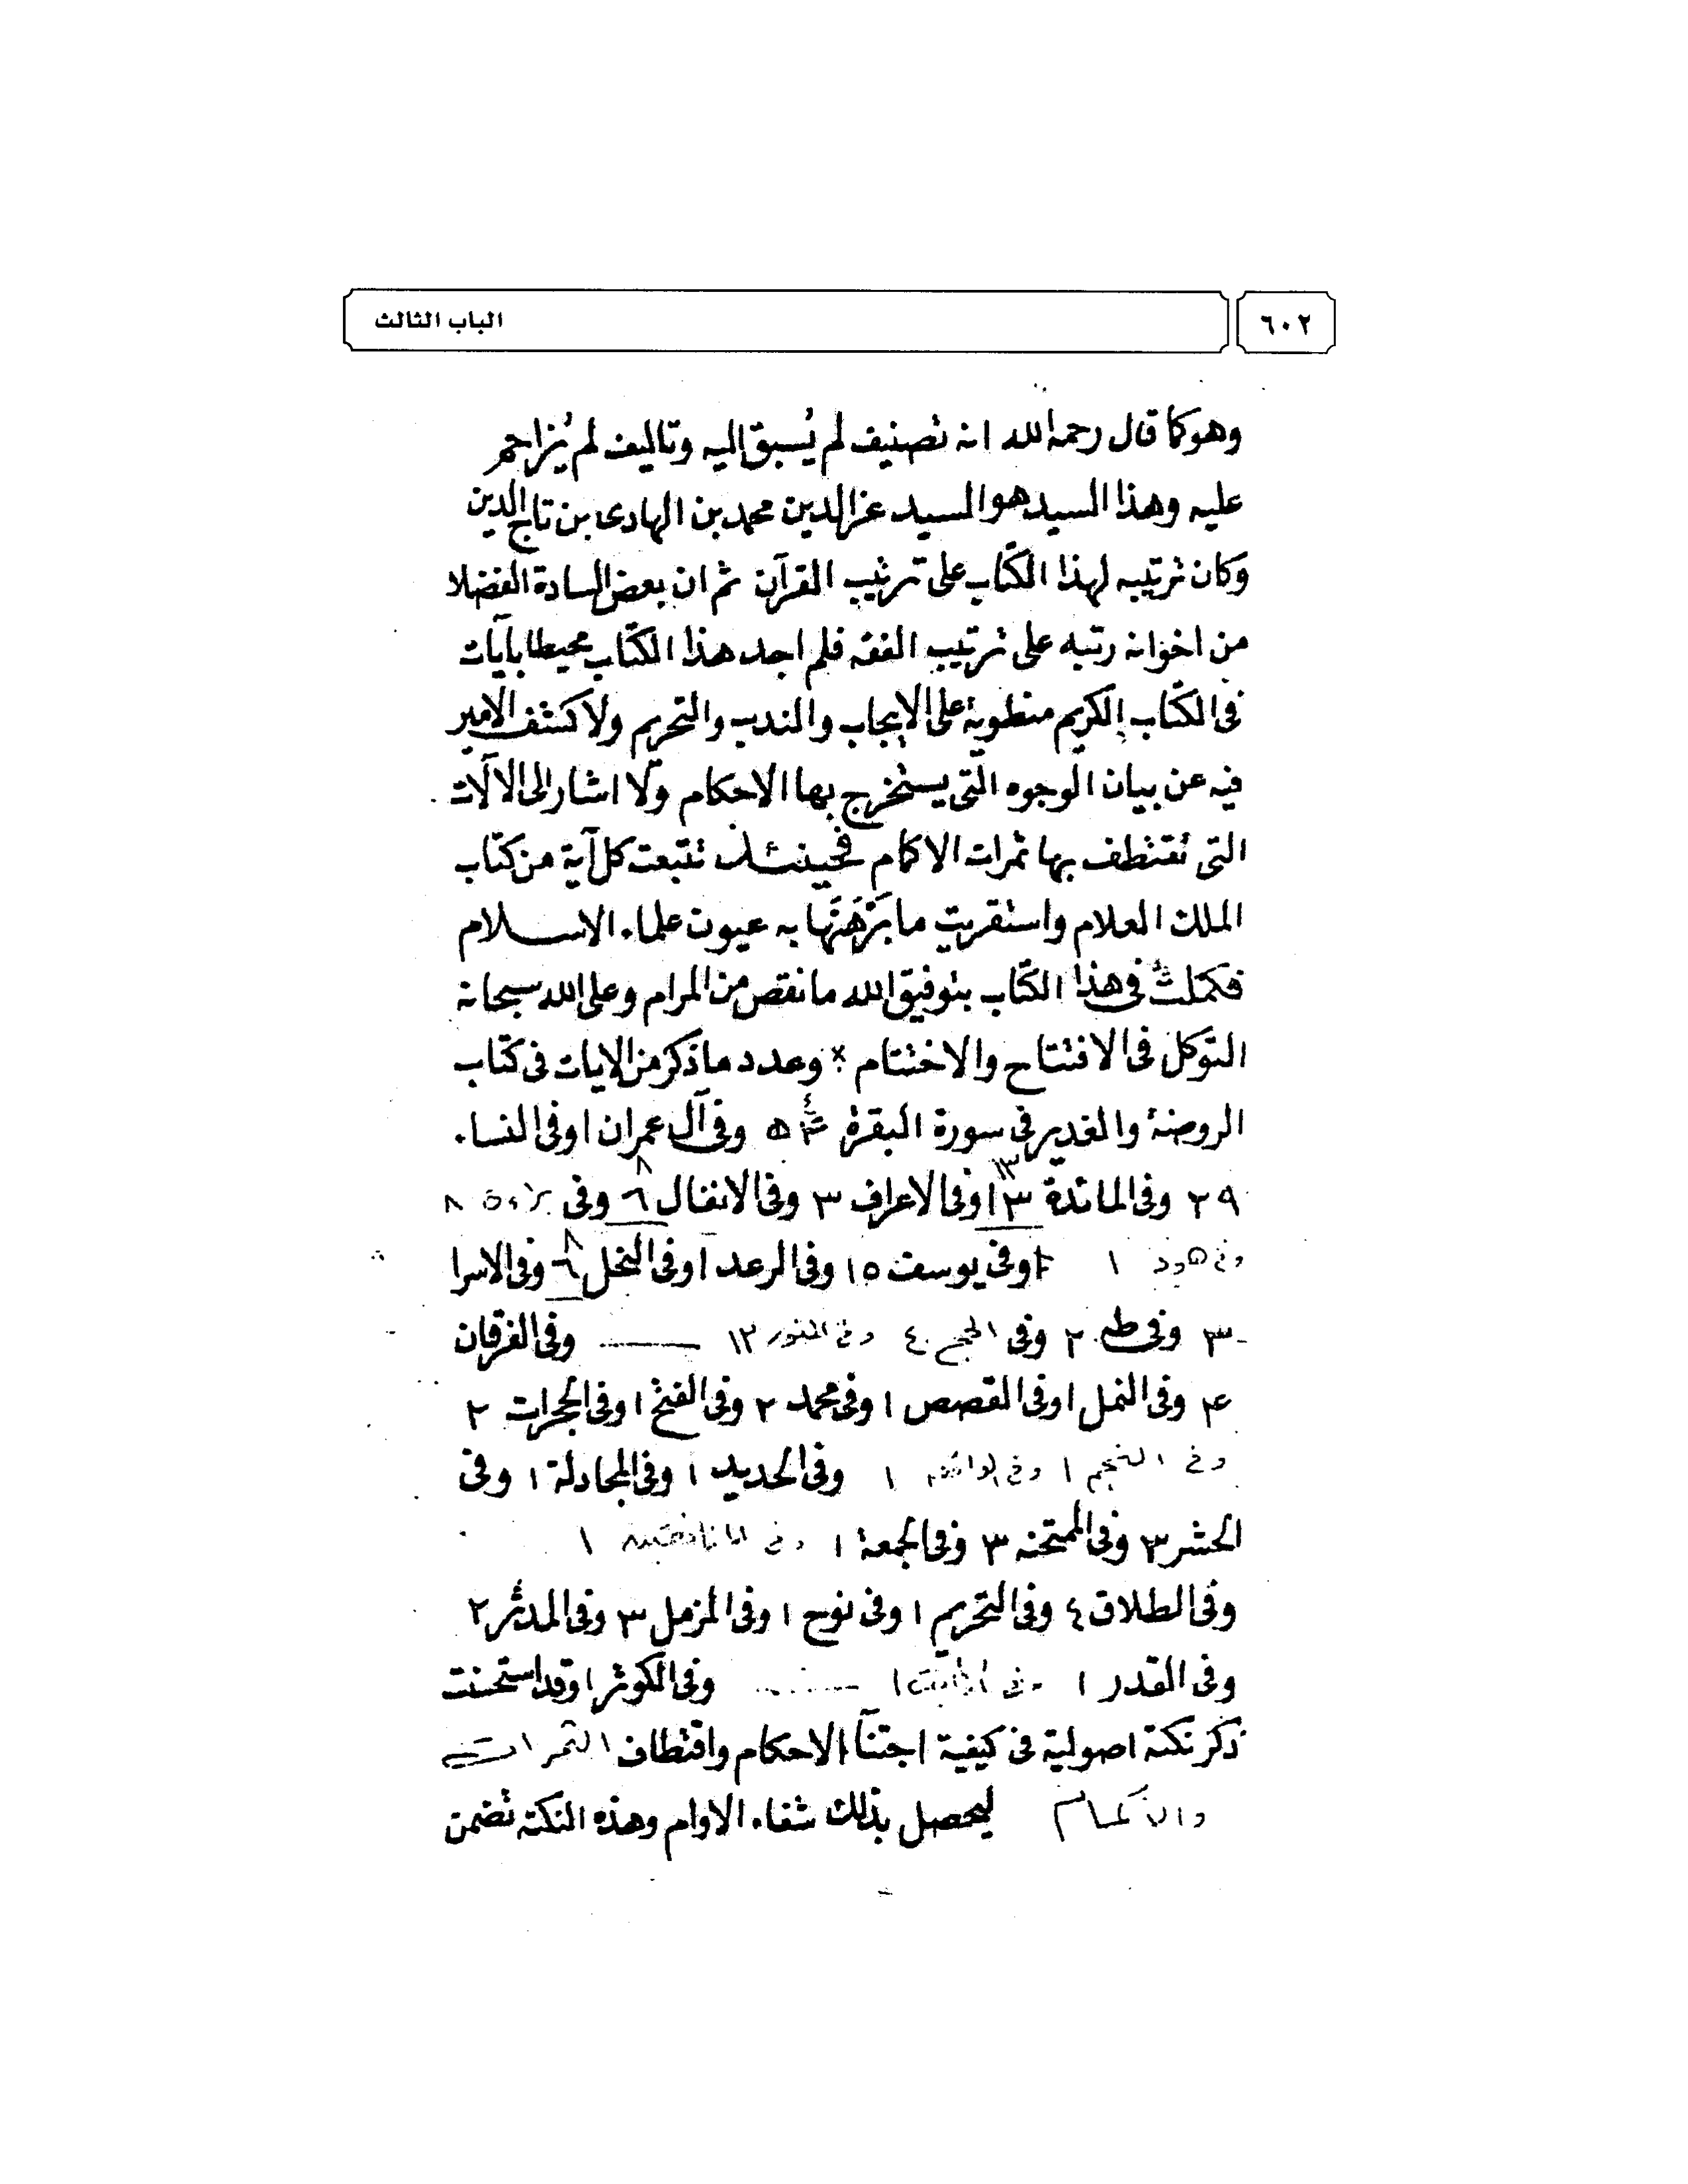 ٦٠٢
الباب الثالث
وهو كما قال رحمه الله انه تصنيف لم يُسبق اليه وتاليف لم يُزاحم
عليه وهذا السيد هو السيد عز الدين محمد بن الهادى بن تاج الدين
وكان ترتيبه لهذا الكتاب على ترتيب القرآن ثم ان بعض السادة الفضلا
من اخوانه رتبه على ترتيب الفقه فلم اجد هذا الكتاب محيطا بآيات
فى الكتاب الكريم منطوية على الايجاب والندب والتحريم ولا كشف الامير
فيه عن بيان الوجوه التى يستخرج بها الاحكام ولا اشار الى الالات
التى تقتطف بها ثمرات الاكمام فحينئذ تتبعت كل آية من كتاب
الملك العلام واستقريت ما بَرْهَنَها به عيون علماء الاسلام
فكملت فى هذا الكتاب بتوفيق الله ما نقص من المرام وعلى الله سبحانه
التوكل فى الافتتاح والاختتام * وعدد ما ذكر من الايات فى كتاب
الروضة والغدير فى سورة البقرة ٥٤ وفى آل عمران ١ وفى النساء
٢٩ وفى المائدة ١٣ وفى الاعراف ٣ وفى الانفال ٦ ٨ وفى براءة ٨
وفى هود ١ وفى يوسف ١٥ وفى الرعد ١ وفى النحل ٦ ٨ وفى الاسرا
٣ وفى طه ٢ وفى الحج ٤ وفى النور ١٣ وفى الفرقان
٤ وفى النمل ١ وفى القصص ١ وفى محمد ٢ وفى الفتح ١ وفى الحجرات ٢
وفى النجم ١ وفى الواقعة ١ وفى الحديد ١ وفى المجادلة ١ وفى
الحشر ٣ وفى الممتحنه ٣ وفى الجمعة ١ وفى المنافقين ١
وفى الطلاق ٤ وفى التحريم ١ وفى نوح ١ وفى المزمل ٣ وفى المدثر ٢
وفى القدر ١ وفى وفى الكوثر ١ وقد استحسنت
ذكر نكتة اصولية فى كيفية اجتنآ الاحكام واقتطاف الثمرات
والاكمام ليحصل بذلك شفاء الاوام وهذه النكتة تضمن